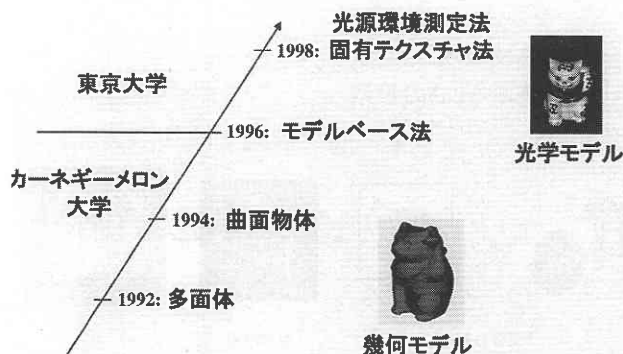 光源環境測定法
1998: 固有テクスチャ法
東京大学
1996: モデルベース法
光学モデル
カーネギーメロン
大学
1994: 曲面物体
1992: 多面体
幾何モデル